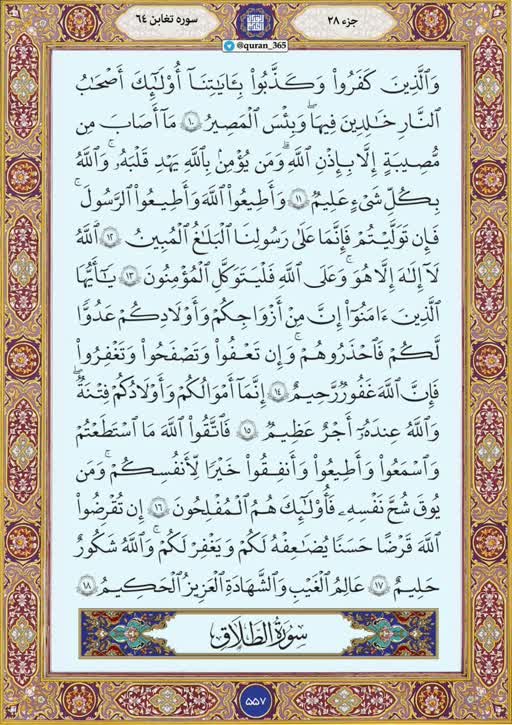 جزء ۲۸
سوره تغابن ٦٤
@quran_365
وَٱلَّذِينَ كَفَرُوا۟ وَكَذَّبُوا۟ بِـَٔايَـٰتِنَآ أُو۟لَـٰٓئِكَ أَصْحَـٰبُ
ٱلنَّارِ خَـٰلِدِينَ فِيهَا ۖ وَبِئْسَ ٱلْمَصِيرُ ۝١٠ مَآ أَصَابَ مِن
مُّصِيبَةٍ إِلَّا بِإِذْنِ ٱللَّهِ ۗ وَمَن يُؤْمِنۢ بِٱللَّهِ يَهْدِ قَلْبَهُۥ ۚ وَٱللَّهُ
بِكُلِّ شَىْءٍ عَلِيمٌ ۝١١ وَأَطِيعُوا۟ ٱللَّهَ وَأَطِيعُوا۟ ٱلرَّسُولَ ۚ
فَإِن تَوَلَّيْتُمْ فَإِنَّمَا عَلَىٰ رَسُولِنَا ٱلْبَلَـٰغُ ٱلْمُبِينُ ۝١٢ ٱللَّهُ
لَآ إِلَـٰهَ إِلَّا هُوَ ۚ وَعَلَى ٱللَّهِ فَلْيَتَوَكَّلِ ٱلْمُؤْمِنُونَ ۝١٣ يَـٰٓأَيُّهَا
ٱلَّذِينَ ءَامَنُوٓا۟ إِنَّ مِنْ أَزْوَٰجِكُمْ وَأَوْلَـٰدِكُمْ عَدُوًّا
لَّكُمْ فَٱحْذَرُوهُمْ ۚ وَإِن تَعْفُوا۟ وَتَصْفَحُوا۟ وَتَغْفِرُوا۟
فَإِنَّ ٱللَّهَ غَفُورٌ رَّحِيمٌ ۝١٤ إِنَّمَآ أَمْوَٰلُكُمْ وَأَوْلَـٰدُكُمْ فِتْنَةٌ ۚ
وَٱللَّهُ عِندَهُۥٓ أَجْرٌ عَظِيمٌ ۝١٥ فَٱتَّقُوا۟ ٱللَّهَ مَا ٱسْتَطَعْتُمْ
وَٱسْمَعُوا۟ وَأَطِيعُوا۟ وَأَنفِقُوا۟ خَيْرًا لِّأَنفُسِكُمْ ۗ وَمَن
يُوقَ شُحَّ نَفْسِهِۦ فَأُو۟لَـٰٓئِكَ هُمُ ٱلْمُفْلِحُونَ ۝١٦ إِن تُقْرِضُوا۟
ٱللَّهَ قَرْضًا حَسَنًا يُضَـٰعِفْهُ لَكُمْ وَيَغْفِرْ لَكُمْ ۚ وَٱللَّهُ شَكُورٌ
حَلِيمٌ ۝١٧ عَـٰلِمُ ٱلْغَيْبِ وَٱلشَّهَـٰدَةِ ٱلْعَزِيزُ ٱلْحَكِيمُ ۝١٨
سُورَةُ ٱلطَّلَاقِ
۵۵۷